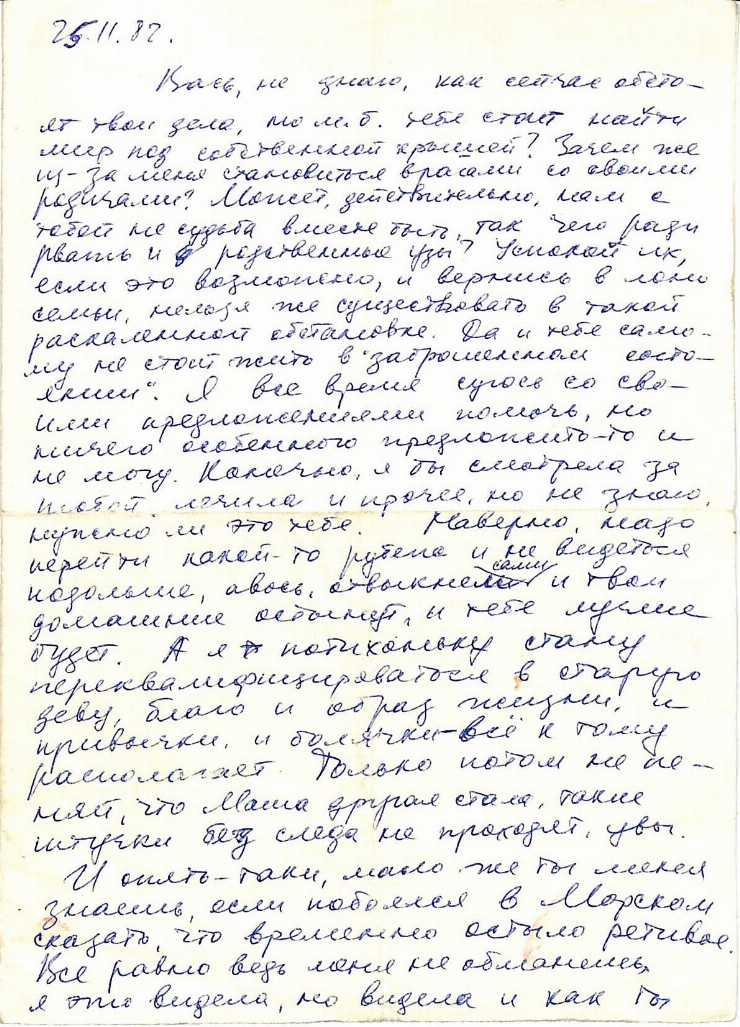 25.11.82.
Вась, не знаю, как сейчас обсто-
ят твои дела, но м.б. тебе стоит найти
мир под собственной крышей? Зачем же
из-за меня становиться врагами со своими
родичами? Может, действительно, нам с
тобой не судьба вместе быть, так чего ради
рвать и родственные узы? Успокой их,
если это возможно, и вернись в лоно
семьи, нельзя же существовать в такой
раскаленной обстановке. Да и тебе само-
му не стоит жить в "заброшенном состо-
янии". Я все время суюсь со сво-
ими предложениями помочь, но
ничего особенного предложить-то и
не могу. Конечно, я бы смотрела за
тобой, лечила и прочее, но не знаю,
нужно ли это тебе. Наверно, надо
перейти какой-то рубеж и не видеться
подольше, авось, отвыкнем сами и твои
домашние остынут, и тебе лучше
будет. А я потихоньку стану
переквалифицироваться в старую
деву, благо и образ жизни, и
привычки, и болячки - всё к тому
располагает. Только потом не пе-
няй, что Маша другая стала, такие
штучки без следа не проходят, увы.
И опять-таки, мало же ты меня
знаешь, если побоялся в Морском
сказать, что временно остыло ретивое.
Все равно ведь меня не обманешь,
я это видела, но видела и как ты